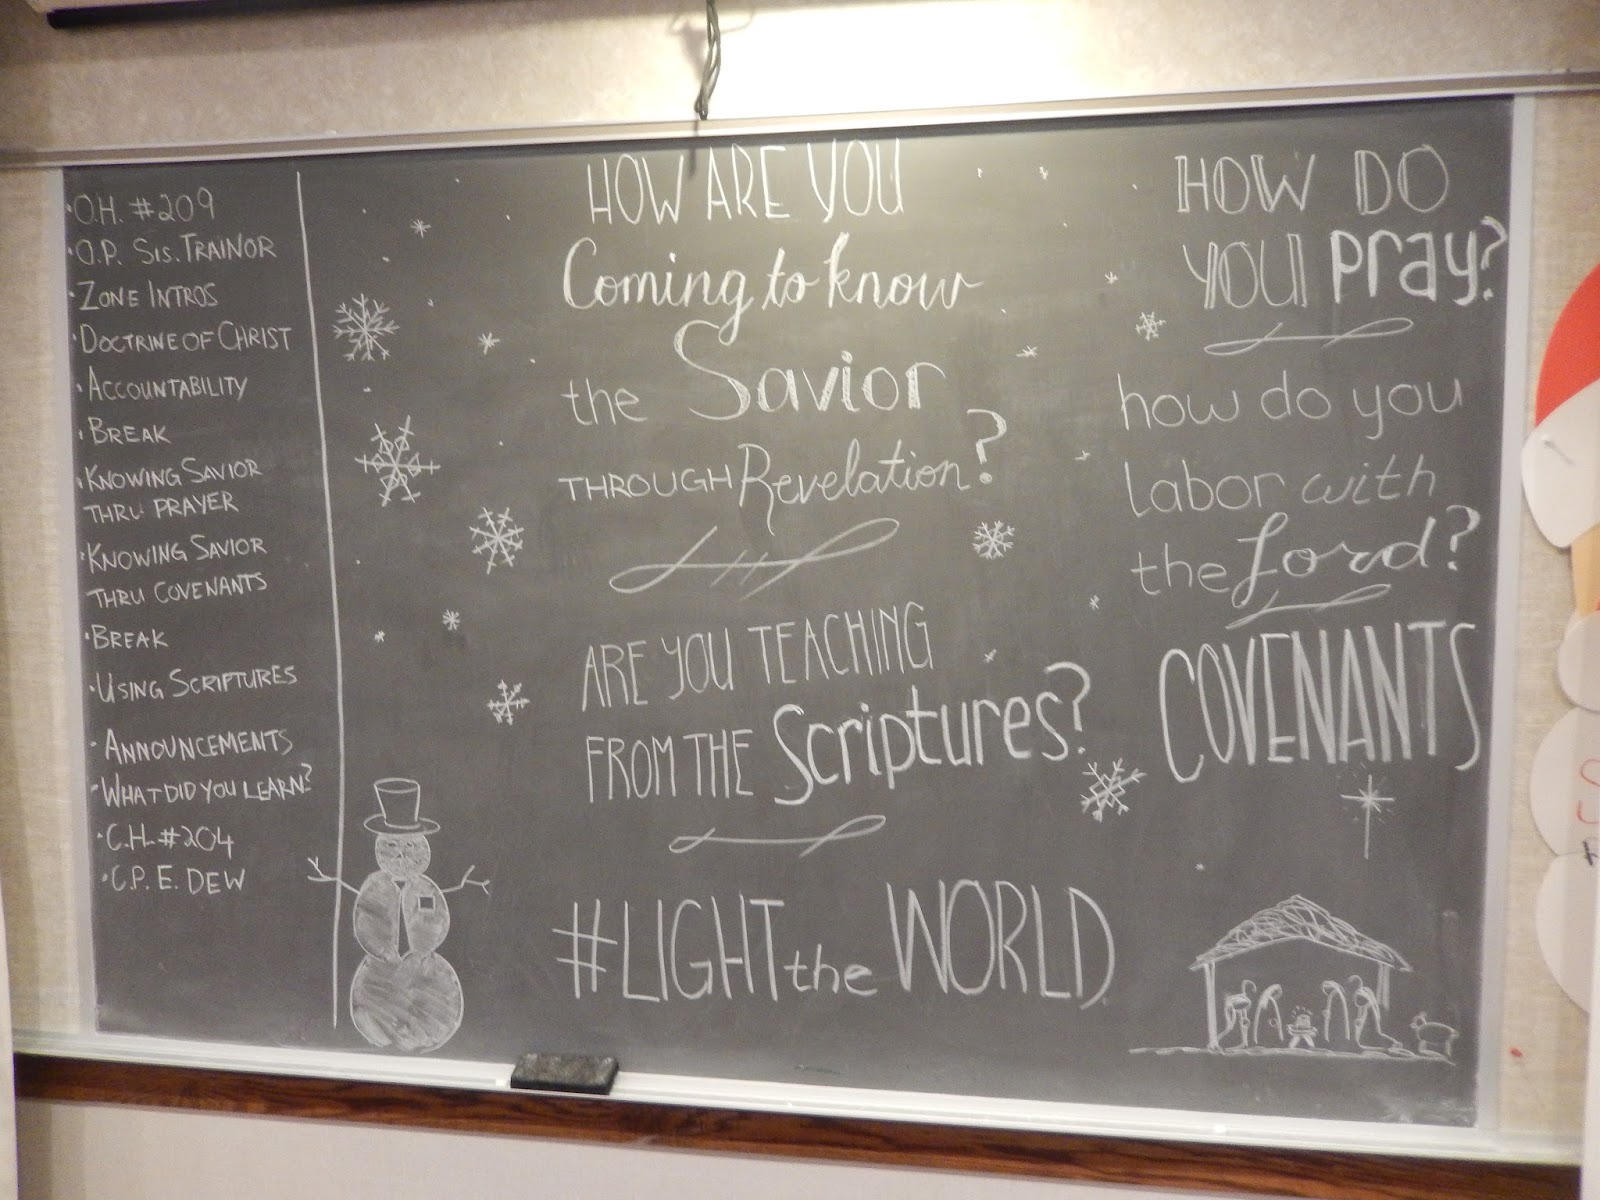 · O.H. #209
· O.P. SIS. TRAINOR
· ZONE INTROS
· DOCTRINE OF CHRIST
· ACCOUNTABILITY
· BREAK
· KNOWING SAVIOR
THRU PRAYER
· KNOWING SAVIOR
THRU COVENANTS
· BREAK
· USING SCRIPTURES
· ANNOUNCEMENTS
· WHAT DID YOU LEARN?
· C.H. #204
· C.P. E. DEW
HOW ARE YOU
Coming to know
the Savior
THROUGH Revelation?
ARE YOU TEACHING
FROM THE Scriptures?
#LIGHT the WORLD
HOW DO
YOU pray?
how do you
labor with
the Lord?
COVENANTS